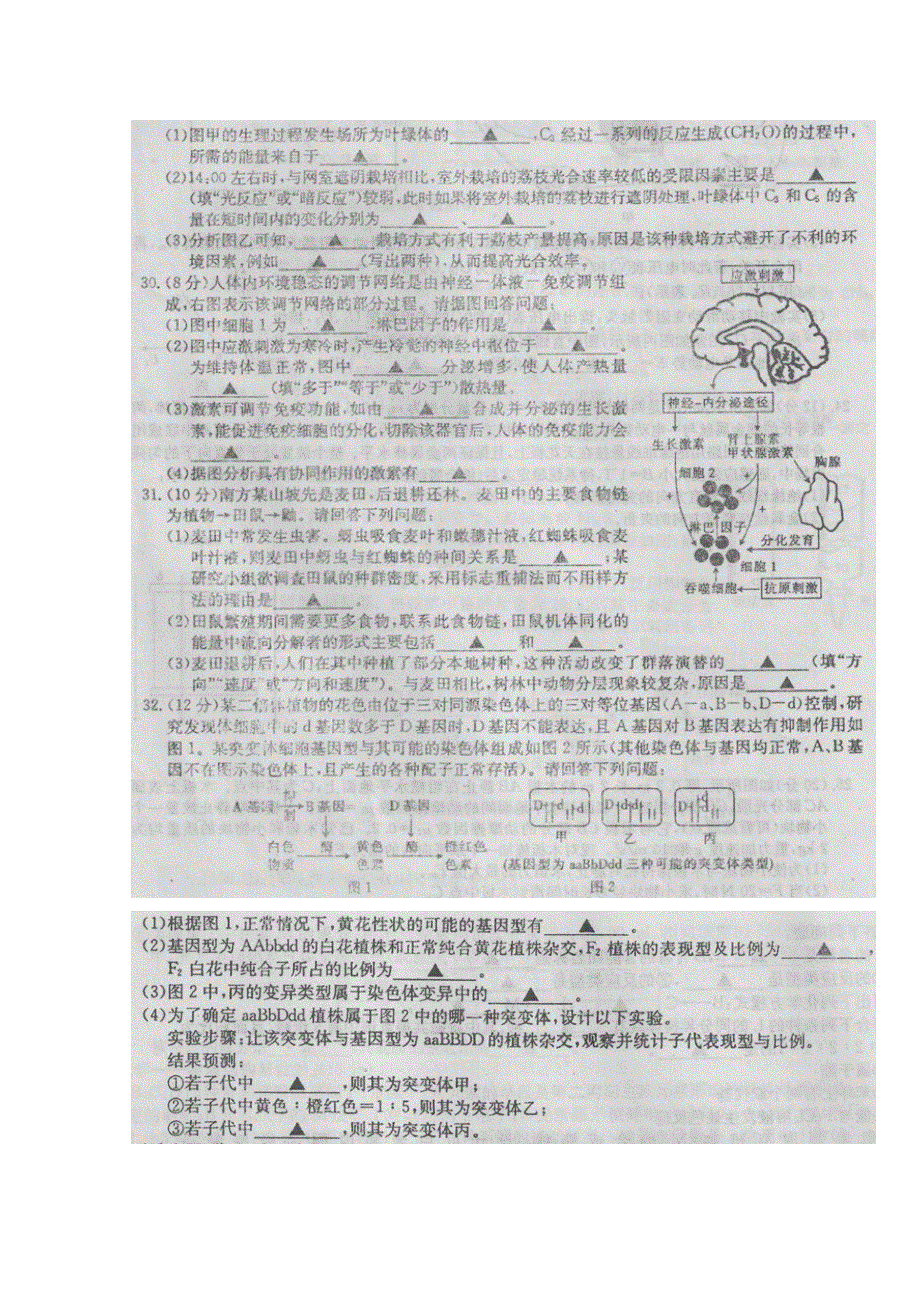 (1)图甲的生理过程发生场所为叶绿体的▲,C₃经过一系列的反应生成(CH₂O)的过程中,
所需的能量来自于▲。
(2)14:00左右时,与网室遮阴栽培相比,室外栽培的荔枝光合速率较低的受限因素主要是▲
(填“光反应”或“暗反应”)较弱,此时如果将室外栽培的荔枝进行遮阴处理,叶绿体中C₃和C₅的含
量在短时间内的变化分别为▲、▲。
(3)分析图乙可知,▲栽培方式有利于荔枝产量提高,原因是该种栽培方式避开了不利的环
境因素,例如▲(写出两种),从而提高光合效率。
30.(8分)人体内环境稳态的调节网络是由神经-体液-免疫调节组
成,右图表示该调节网络的部分过程。请据图回答问题:
(1)图中细胞1为▲,淋巴因子的作用是▲。
(2)图中应激刺激为寒冷时,产生冷觉的神经中枢位于▲
为维持体温正常,图中▲分泌增多,使人体产热量
▲(填“多于”“等于”或“少于”)散热量。
(3)激素可调节免疫功能,如由▲合成并分泌的生长激
素,能促进免疫细胞的分化,切除该器官后,人体的免疫能力会
▲。
(4)据图分析具有协同作用的激素有▲。
应激刺激
神经-内分泌途径
生长激素
肾上腺素
甲状腺激素
胸腺
细胞2
+
+
+
淋巴因子
分化发育
细胞1
吞噬细胞
抗原刺激
31.(10分)南方某山坡先是麦田,后退耕还林。麦田中的主要食物链
为植物→田鼠→鼬。请回答下列问题:
(1)麦田中常发生虫害。蚜虫吸食麦叶和嫩穗汁液,红蜘蛛吸食麦
叶汁液,则麦田中蚜虫与红蜘蛛的种间关系是▲;某
研究小组欲调查田鼠的种群密度,采用标志重捕法而不用样方
法的理由是▲。
(2)田鼠繁殖期间需要更多食物,联系此食物链,田鼠机体同化的
能量中流向分解者的形式主要包括▲和▲。
(3)麦田退耕后,人们在其中种植了部分本地树种,这种活动改变了群落演替的▲(填“方
向”“速度”或“方向和速度”)。与麦田相比,树林中动物分层现象较复杂,原因是▲。
32.(12分)某二倍体植物的花色由位于三对同源染色体上的三对等位基因(A-a、B-b、D-d)控制,研
究发现体细胞中的d基因数多于D基因时,D基因不能表达,且A基因对B基因表达有抑制作用如
图1。某突变体细胞基因型与其可能的染色体组成如图2所示(其他染色体与基因均正常,A、B基
因不在图示染色体上,且产生的各种配子正常存活)。请回答下列问题:
A基因 抑制 B基因 D基因
白色 酶 黄色 酶 橙红色
物质 色素 色素
图1
D d d
D d d
D d
甲
乙
丙
(基因型为aaBbDdd三种可能的突变体类型)
图2
(1)根据图1,正常情况下,黄花性状的可能的基因型有▲。
(2)基因型为AAbbdd的白花植株和正常纯合黄花植株杂交,F₂植株的表现型及比例为▲,
F₂白花中纯合子所占的比例为▲。
(3)图2中,丙的变异类型属于染色体变异中的▲。
(4)为了确定aaBbDdd植株属于图2中的哪一种突变体,设计以下实验。
实验步骤:让该突变体与基因型为aaBBDD的植株杂交,观察并统计子代表现型与比例。
结果预测:
①若子代中▲,则其为突变体甲;
②若子代中黄色:橙红色=1:5,则其为突变体乙;
③若子代中▲,则其为突变体丙。